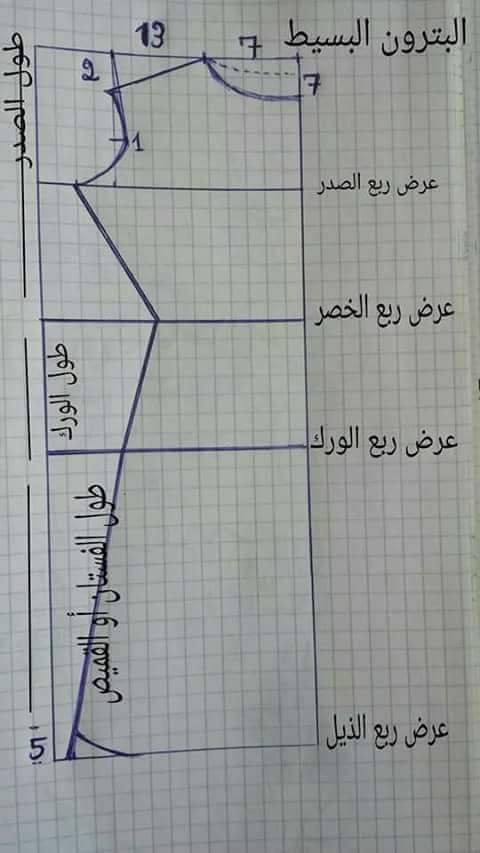 البترون البسيط
7
13
2
7
1
طول الصدر
عرض ربع الصدر
عرض ربع الخصر
طول الورك
عرض ربع الورك
طول الفستان أو القميص
عرض ربع الذيل
5